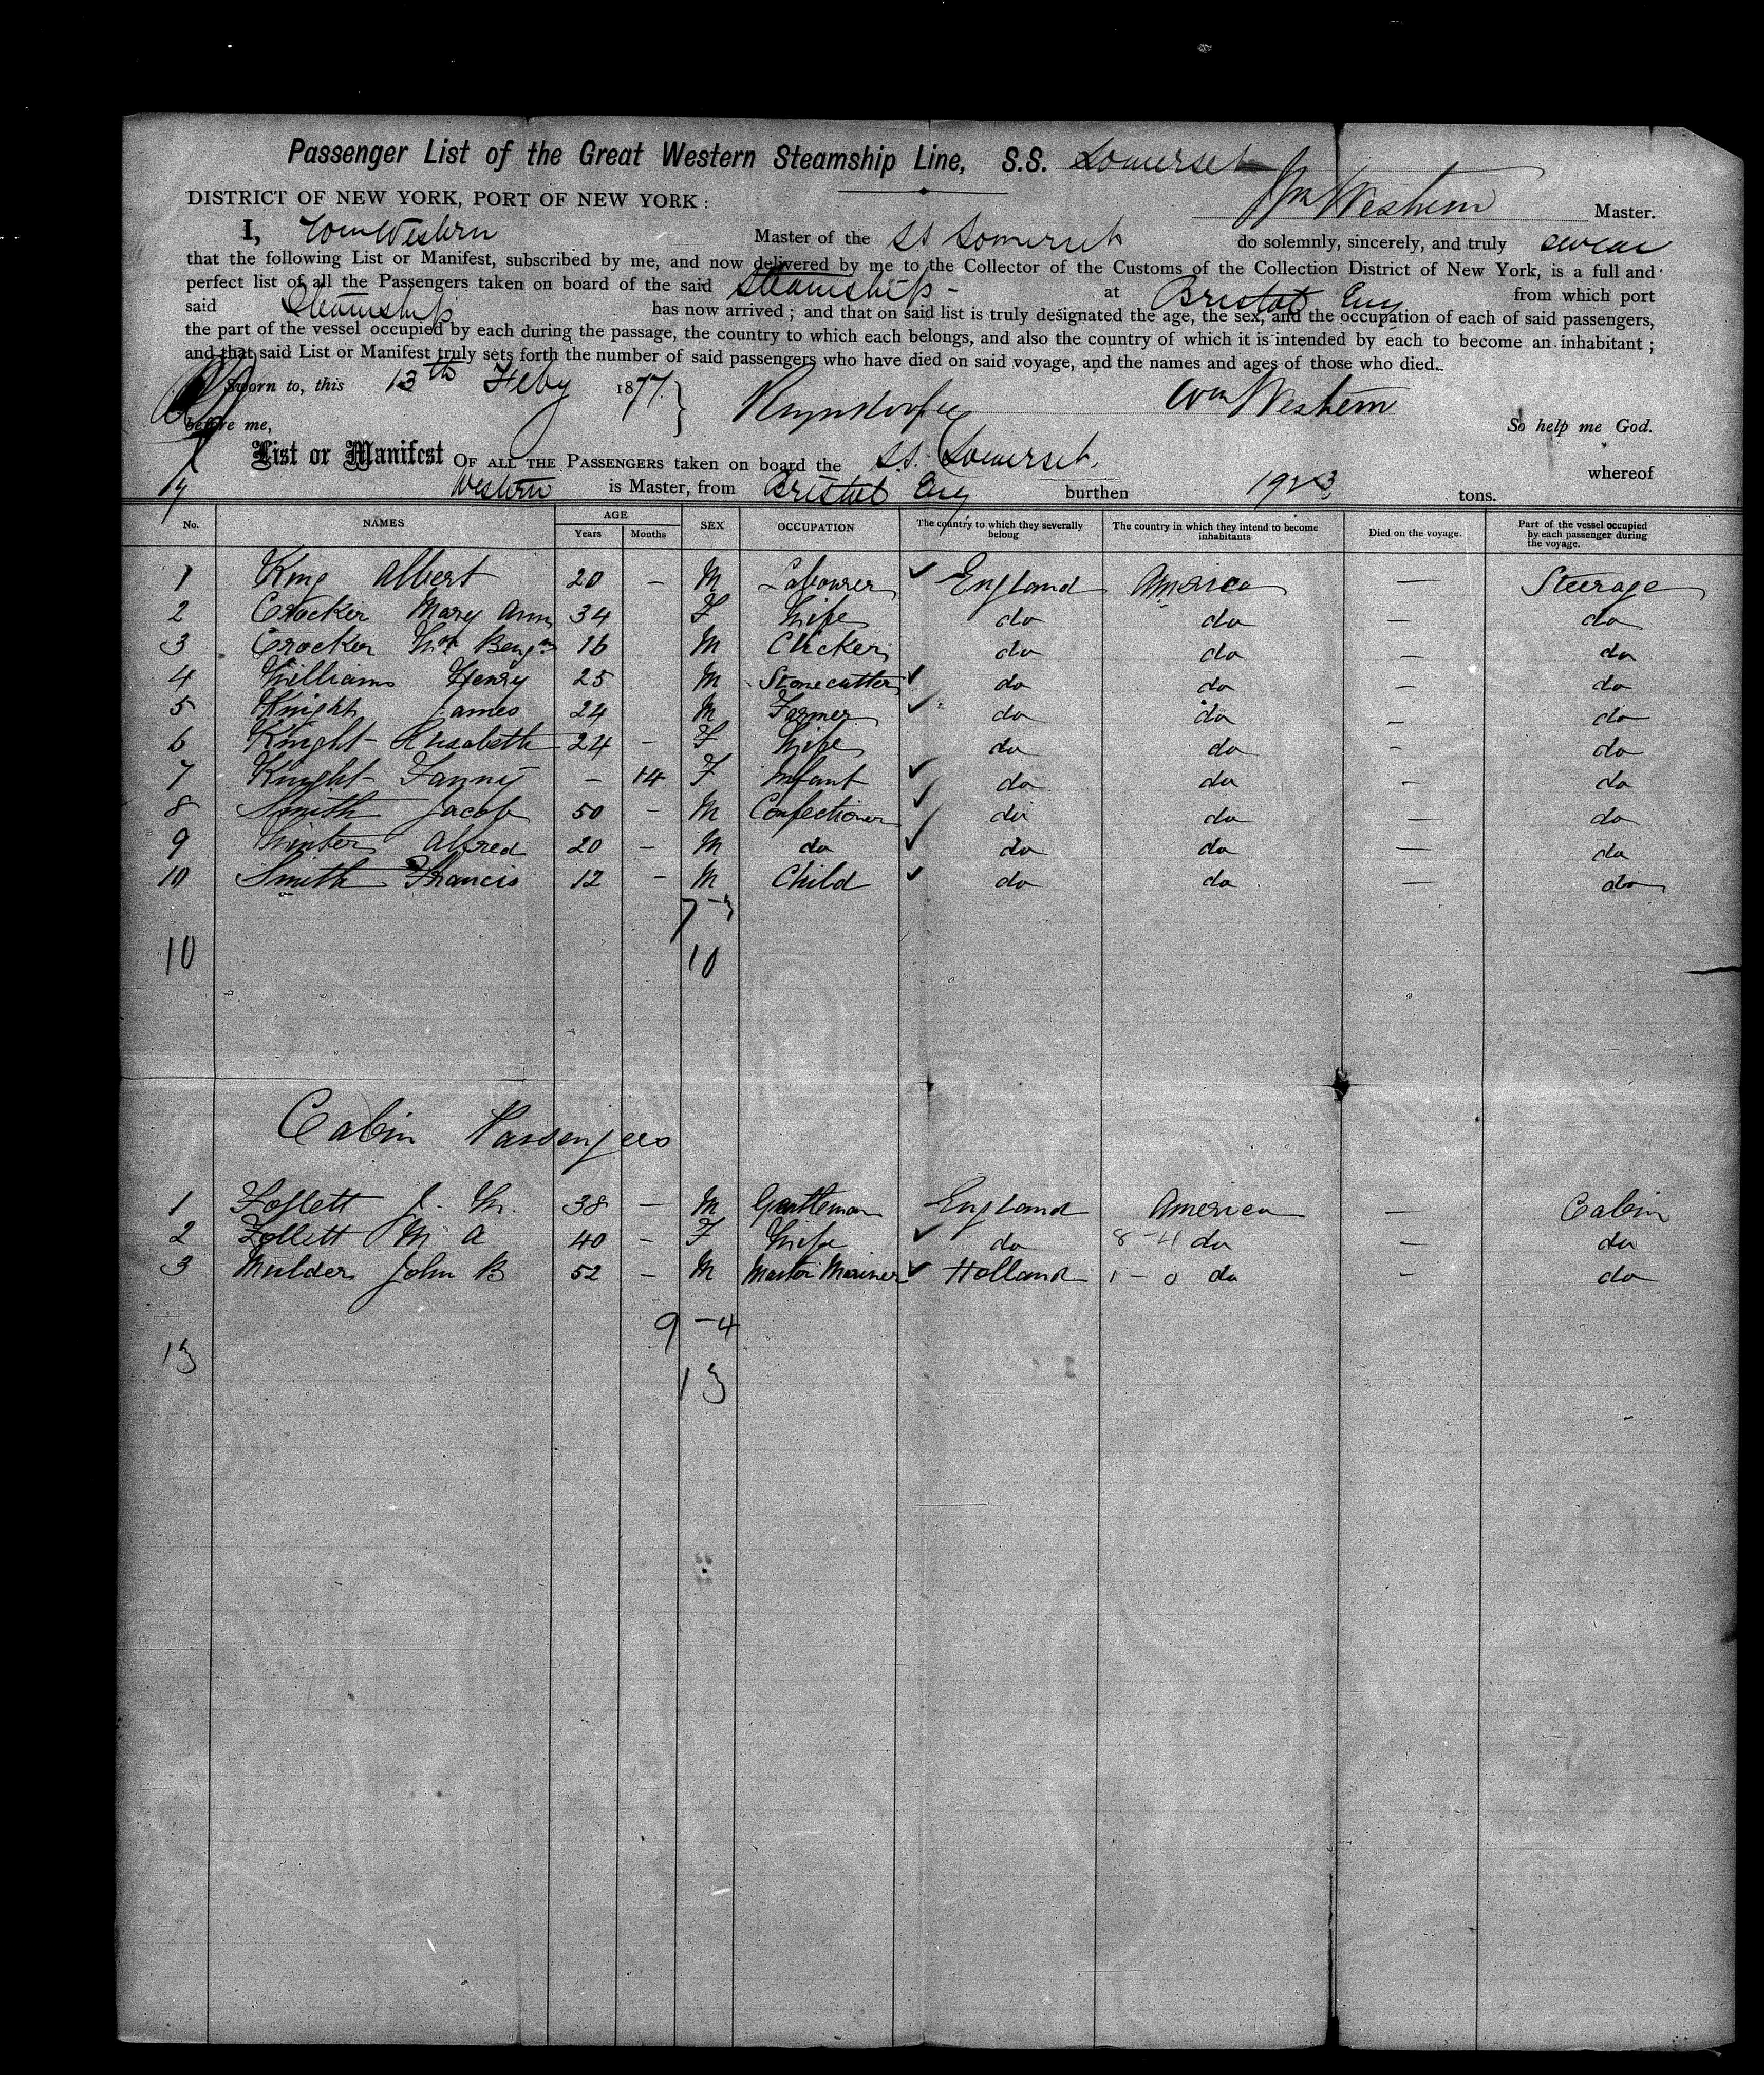 Passenger List of the Great Western Steamship Line, S.S. Somerset
Wm Western Master.
DISTRICT OF NEW YORK, PORT OF NEW YORK :
I, Wm Western Master of the SS Somerset do solemnly, sincerely, and truly swear
that the following List or Manifest, subscribed by me, and now delivered by me to the Collector of the Customs of the Collection District of New York, is a full and
perfect list of all the Passengers taken on board of the said Steamship - at Bristol Eng from which port
said Steamship has now arrived ; and that on said list is truly designated the age, the sex, and the occupation of each of said passengers,
the part of the vessel occupied by each during the passage, the country to which each belongs, and also the country of which it is intended by each to become an inhabitant ;
and that said List or Manifest truly sets forth the number of said passengers who have died on said voyage, and the names and ages of those who died.
Sworn to, this 13th Feby 1877. } Wm Western
before me, So help me God.
List or Manifest OF ALL THE PASSENGERS taken on board the S.S. Somerset, whereof
Western is Master, from Bristol Eng burthen 1923 tons.
No. NAMES AGE Years Months SEX OCCUPATION The country to which they severally belong The country in which they intend to become inhabitants Died on the voyage. Part of the vessel occupied by each passenger during the voyage.
1 King Albert 20 - M Labourer ✓ England America - Steerage
2 Crocker Mary Ann 34 F Wife do do - do
3 Crocker Benjn 16 M Clicker do do - do
4 Williams Henry 25 M Stonecutter ✓ do do - do
5 Knight James 24 M Farmer ✓ do do - do
6 Knight Elisabeth 24 - F Wife do do - do
7 Knight Fanny - 14 F Infant ✓ do do - do
8 Smith Jacob 50 - M Confectioner ✓ do do - do
9 Winter Alfred 20 - M do ✓ do do - do
10 Smith Francis 12 - M Child ✓ do do - do
7-3
10 10
Cabin Passengers
1 Follett J. W. 38 - M Gentleman England America - Cabin
2 Follett M A 40 - F Wife ✓ do 8-4 do - do
3 Mulder John B 52 - M Master Mariner ✓ Holland 1-0 do - do
9-4
13
13